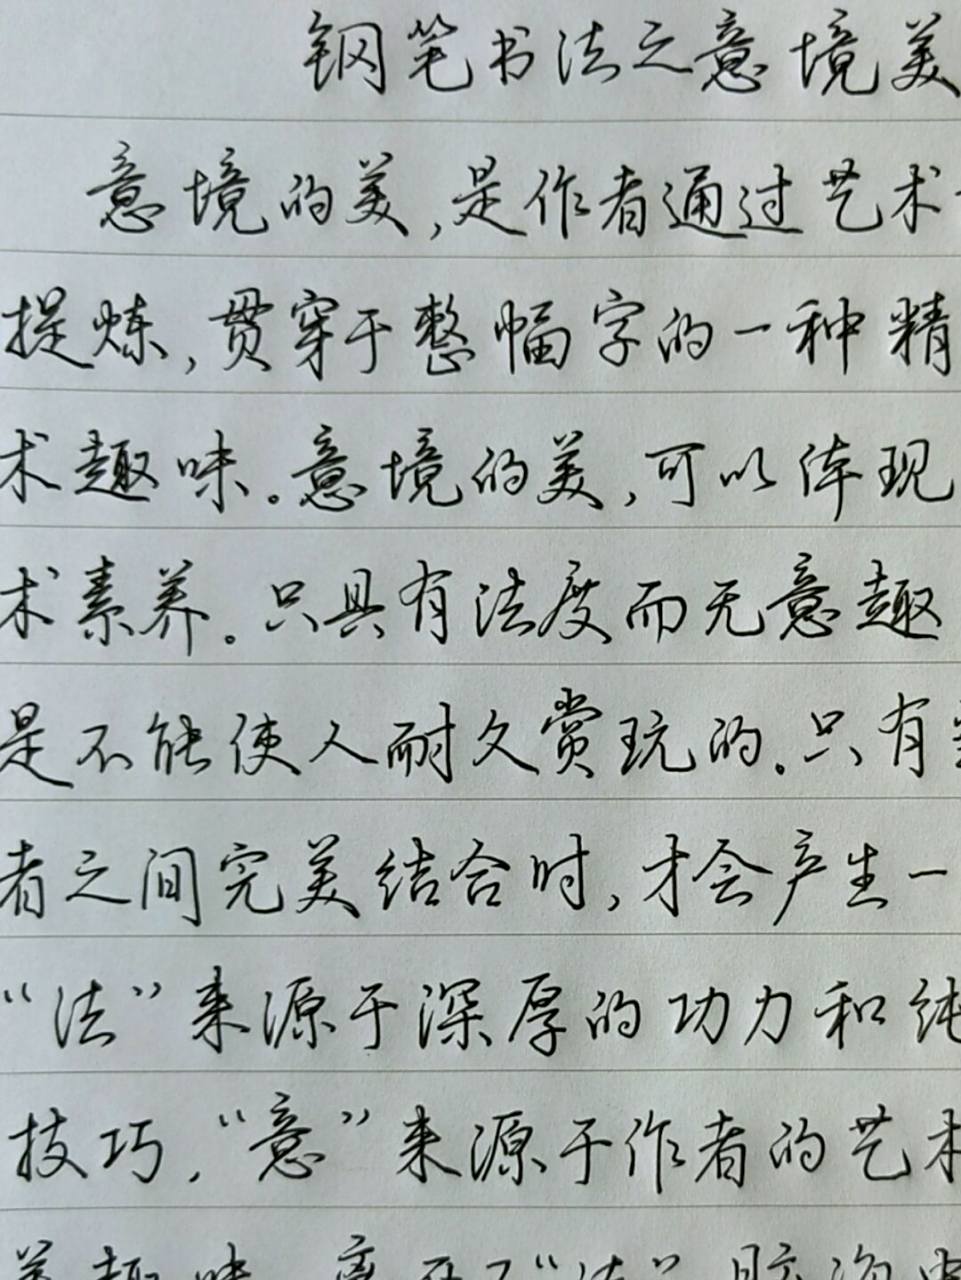 钢笔书法之意境美
意境的美,是作者通过艺术
提炼,贯穿于整幅字的一种精
术趣味。意境的美,可以体现
术素养。只具有法度而无意趣
是不能使人耐久赏玩的。只有
者之间完美结合时,才会产生一
“法”来源于深厚的功力和纯
技巧,“意”来源于作者的艺术
美趣味。离开了“法”